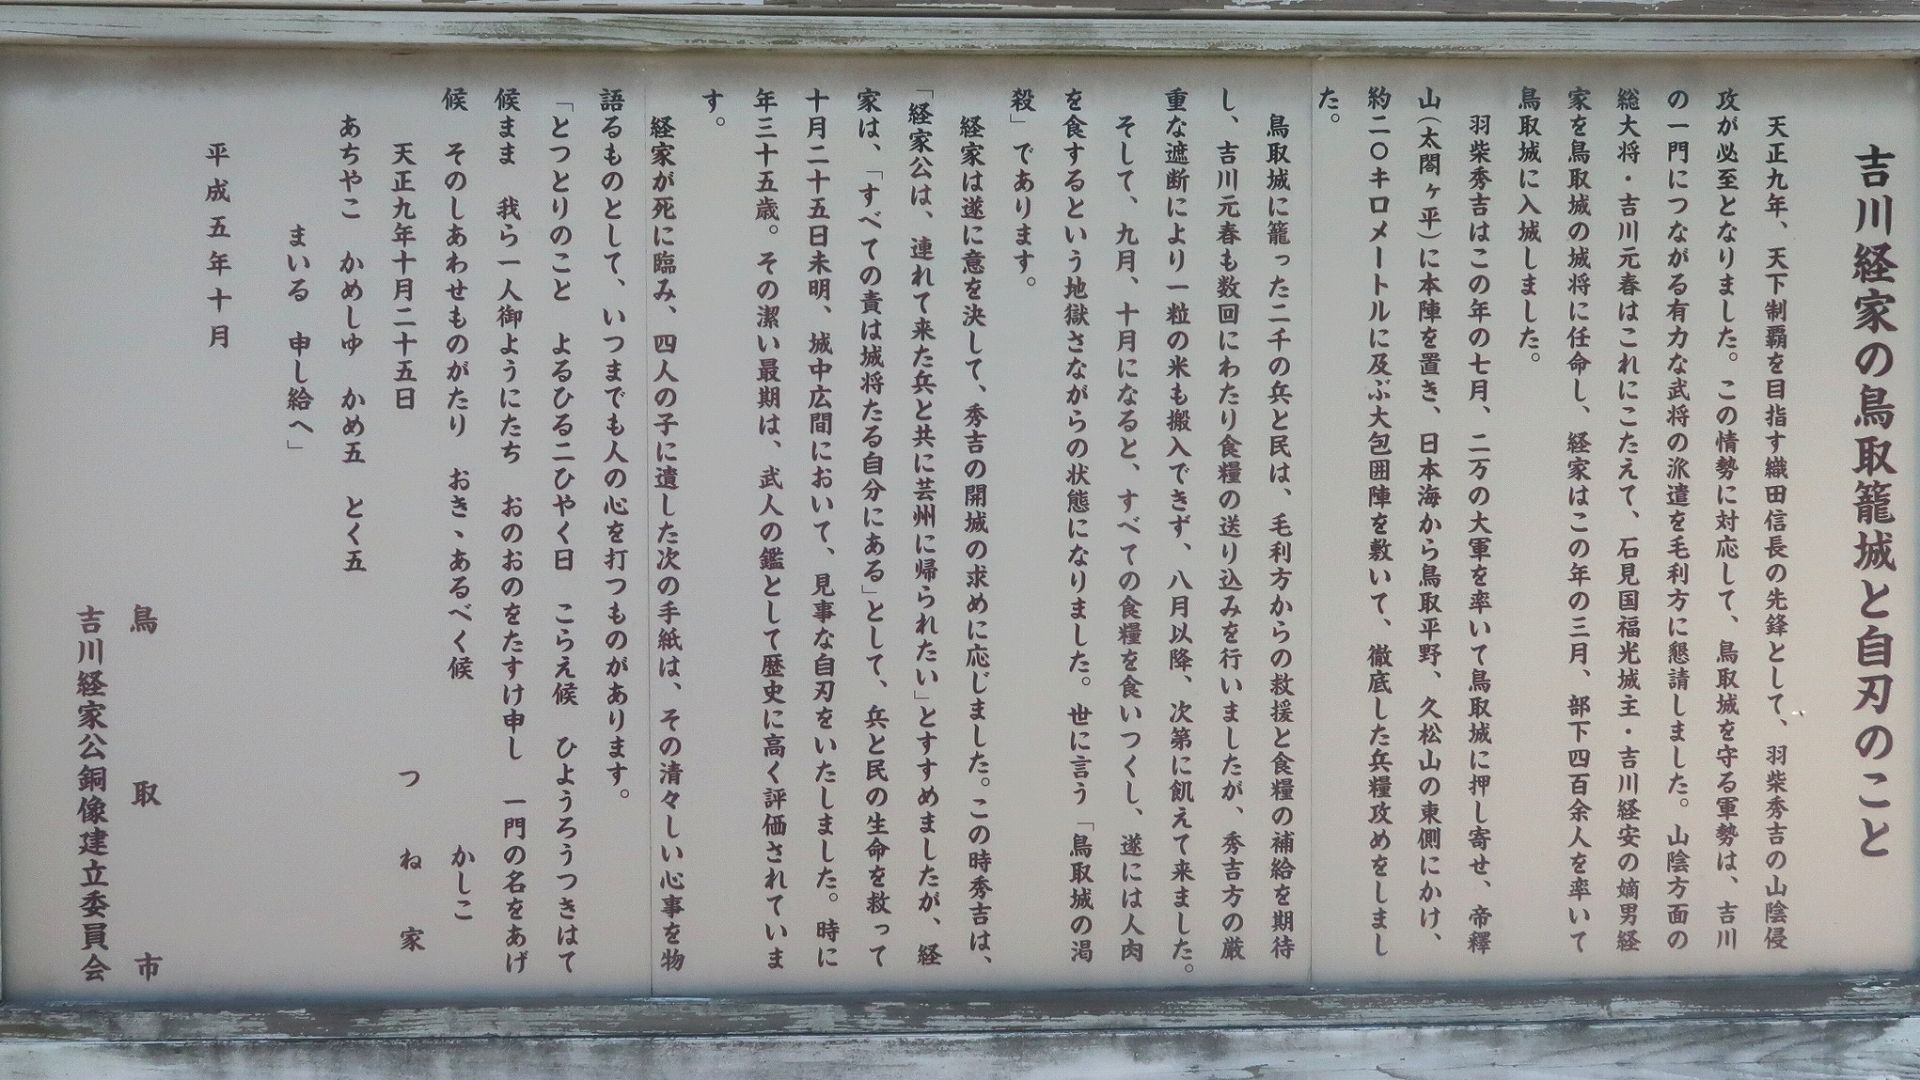 吉川経家の鳥取籠城と自刃のこと
天正九年、天下制覇を目指す織田信長の先鋒として、羽柴秀吉の山陰侵
攻が必至となりました。この情勢に対応して、鳥取城を守る軍勢は、吉川
の一門につながる有力な武将の派遣を毛利方に懇請しました。山陰方面の
総大将・吉川元春はこれにこたえて、石見国福光城主・吉川経安の嫡男経
家を鳥取城の城将に任命し、経家はこの年の三月、部下四百余人を率いて
鳥取城に入城しました。
羽柴秀吉はこの年の七月、二万の大軍を率いて鳥取城に押し寄せ、帝釋
山(太閤ヶ平)に本陣を置き、日本海から鳥取平野、久松山の東側にかけ、
約二〇キロメートルに及ぶ大包囲陣を敷いて、徹底した兵糧攻めをしまし
た。
鳥取城に籠った二千の兵と民は、毛利方からの救援と食糧の補給を期待
し、吉川元春も数回にわたり食糧の送り込みを行いましたが、秀吉方の厳
重な遮断により一粒の米も搬入できず、八月以降、次第に飢えて来ました。
そして、九月、十月になると、すべての食糧を食いつくし、遂には人肉
を食するという地獄さながらの状態になりました。世に言う「鳥取城の渇
殺」であります。
経家は遂に意を決して、秀吉の開城の求めに応じました。この時秀吉は、
「経家公は、連れて来た兵と共に芸州に帰られたい」とすすめましたが、経
家は、「すべての責は城将たる自分にある」として、兵と民の生命を救って
十月二十五日未明、城中広間において、見事な自刃をいたしました。時に
年三十五歳。その潔い最期は、武人の鑑として歴史に高く評価されていま
す。
経家が死に臨み、四人の子に遺した次の手紙は、その清々しい心事を物
語るものとして、いつまでも人の心を打つものがあります。
「とつとりのこと よるひる二ひやく日 こらえ候 ひようろうつきはて
候まま 我ら一人御ようにたち おのおのをたすけ申し 一門の名をあげ
候 そのしあわせものがたり おきゝあるべく候 かしこ
天正九年十月二十五日 つね家
あちやこ かめしゆ かめ五 とく五
まいる 申し給へ」
平成五年十月
鳥取市
吉川経家公銅像建立委員会